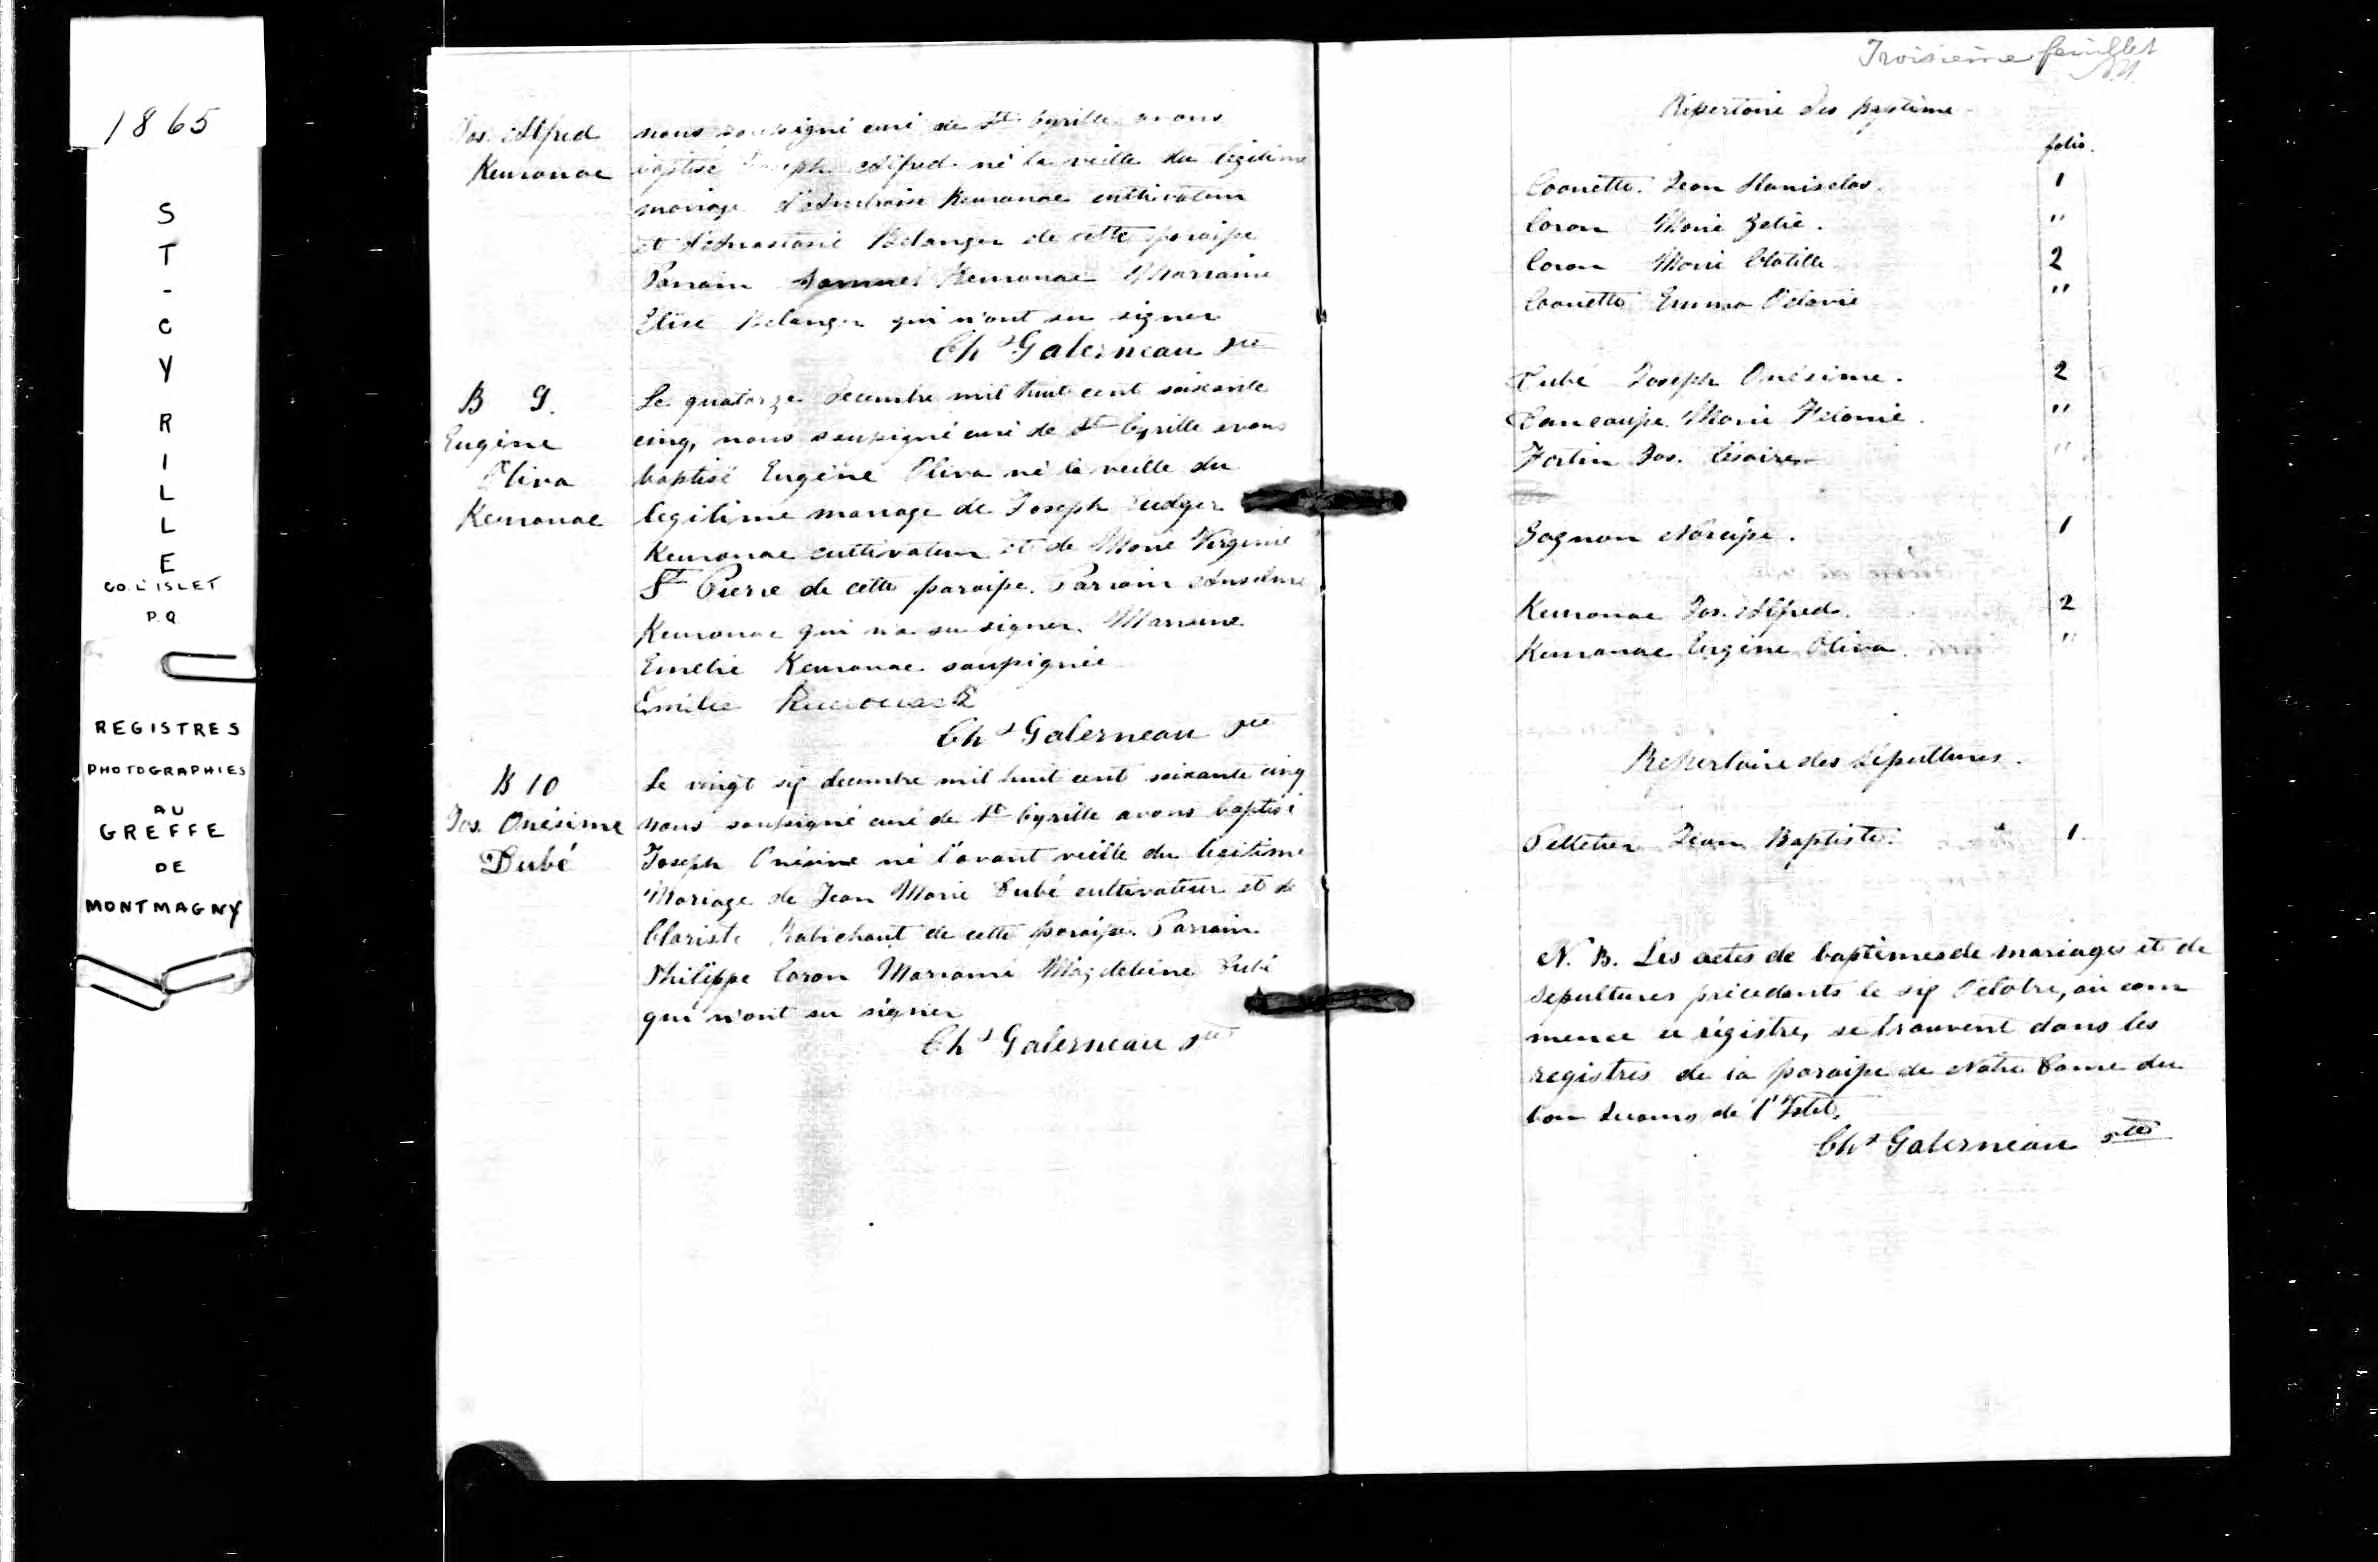 1865
ST-CYRILLE
CO. L'ISLET
P.Q
REGISTRES
PHOTOGRAPHIES
AU
GREFFE
DE
MONTMAGNY
Jos. Alfred
Kerouac
nous soussigné curé de St Cyrille avons
baptisé Joseph Alfred né la veille du légitime
mariage d'Ambroise Kerouac cultivateur
et d'Anastasie Belanger de cette paroisse
Parrain Samuel Kerouac Marraine
Elise Belanger qui n'ont su signer
Chs Galerneau ptre
B 9.
Eugène
Oliva
Kerouac
Le quatorze Decembre mil huit cent soixante
cinq, nous soussigné curé de St Cyrille avons
baptisé Eugène Oliva né la veille du
legitime mariage de Joseph Ludger
Kerouac cultivateur et de Marie Virginie
St Pierre de cette paroisse. Parrain Anselme
Kerouac qui n'a su signer. Marraine
Emélie Kerouac soussignée
Emilie Kerouack
Chs Galerneau ptre
B 10
Jos. Onésime
Dubé
Le vingt six decembre mil huit cent soixante cinq
nous soussigné curé de St Cyrille avons baptisé
Joseph Onésime né l'avant veille du legitime
Mariage de Jean Marie Dubé cultivateur et de
Clariste Robichaut de cette paroisse. Parrain
Philippe Caron Marraine Magdeleine Dubé
qui n'ont su signer
Chs Galerneau ptre
Troisieme feuillet
Répertoire des baptême
folio.
Caouette Jean Stanislas. 1
Caron Marie Zelie. "
Caron Marie Clotille 2
Caouette Emma Octavie "
Dubé Joseph Onésime. 2
Dancausse Marie Felonie. "
Fortin Jos. Césaire "
Gagnon Narcisse. 1
Kerouac Jos. Alfred. 2
Kerouac Eugène Oliva. "
Repertoire des Sépultures.
Pelletier Jean Baptiste. 1.
N. B. Les actes de baptêmes de mariages et de
sépultures précédants le six Octobre, où com
mence ce régistre, se trouvent dans les
registres de la paroisse de Notre Dame du
bon Secours de l'Islet.
Chs Galerneau ptre